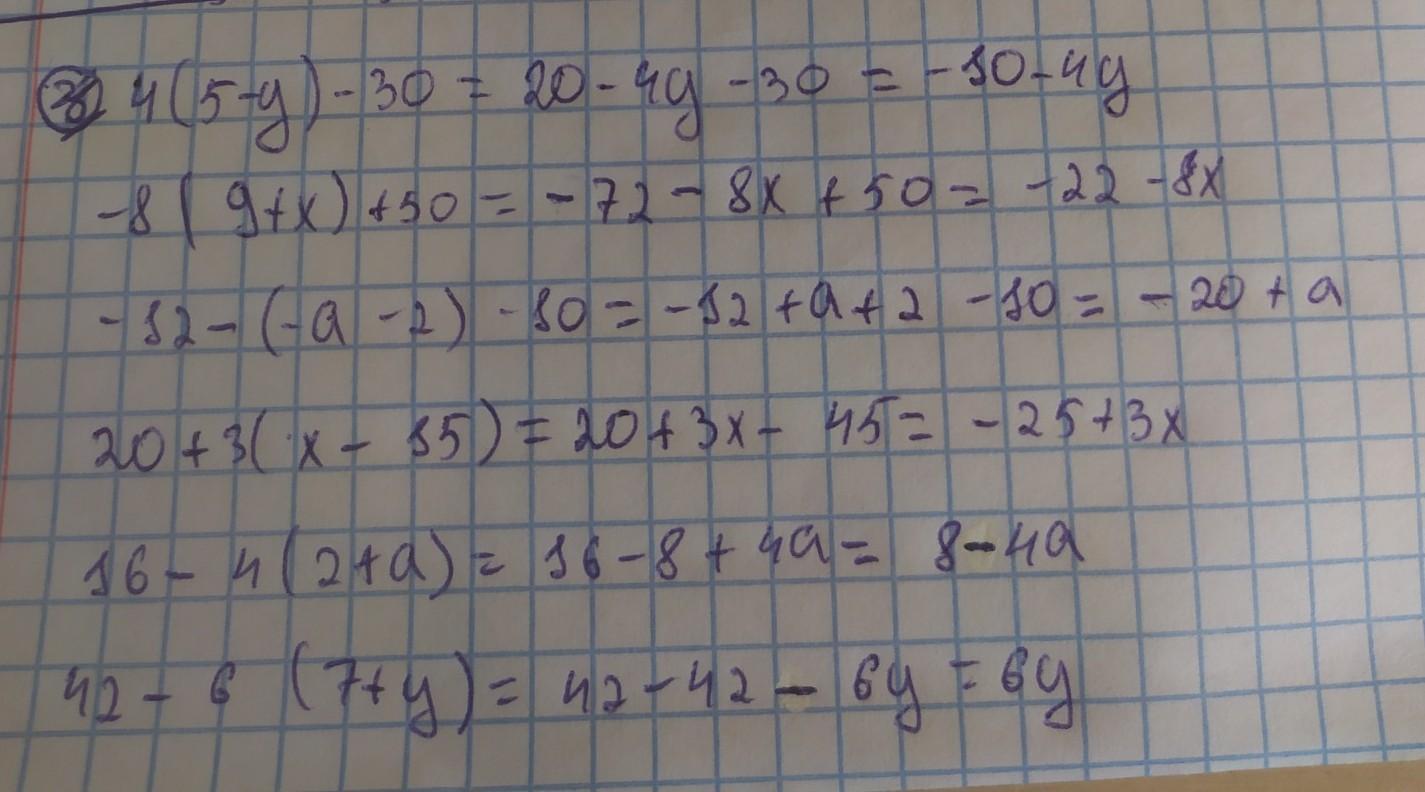 4(5-y)-30 = 20-4y-30 = -10-4y
-8(9+x)+50 = -72-8x+50 = -22-8x
-12-(-a-2)-10 = -12+a+2-10 = -20+a
20+3(x-15) = 20+3x-45 = -25+3x
16-4(2+a) = 16-8+4a = 8-4a
42-6(7+y) = 42-42-6y = 6y